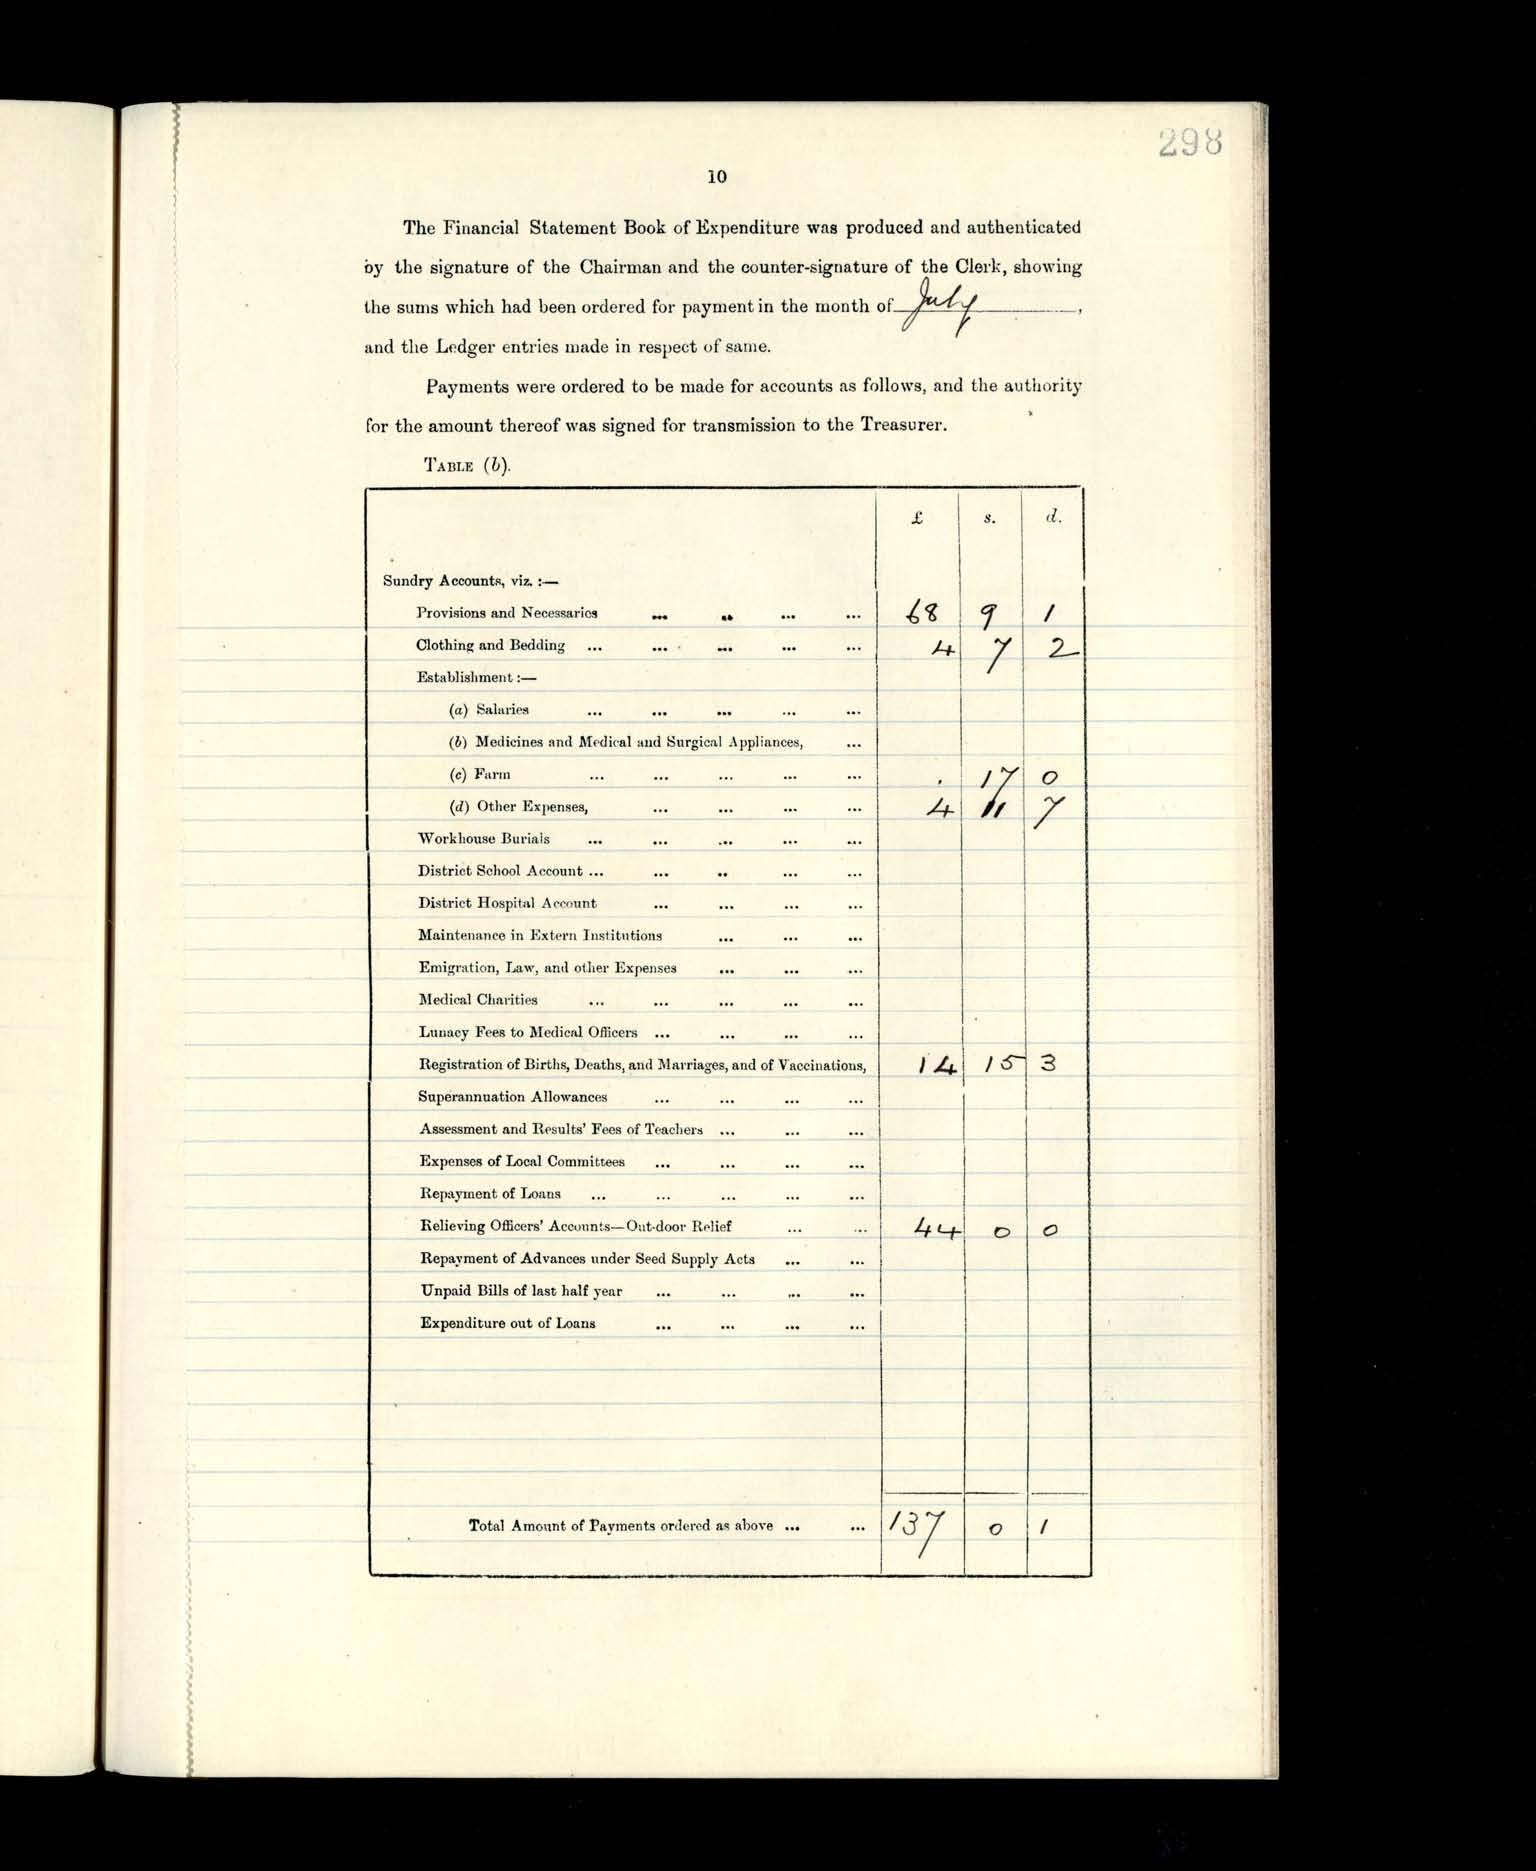 298
10
The Financial Statement Book of Expenditure was produced and authenticated
by the signature of the Chairman and the counter-signature of the Clerk, showing
the sums which had been ordered for payment in the month of July,
and the Ledger entries made in respect of same.
Payments were ordered to be made for accounts as follows, and the authority
for the amount thereof was signed for transmission to the Treasurer.
TABLE (b).
£ s. d.
Sundry Accounts, viz. :—
Provisions and Necessaries ... ... ... ... 68 9 1
Clothing and Bedding ... ... ... ... ... 4 7 2
Establishment :—
(a) Salaries ... ... ... ... ...
(b) Medicines and Medical and Surgical Appliances, ...
(c) Farm ... ... ... ... ... . 17 0
(d) Other Expenses, ... ... ... ... 4 11 7
Workhouse Burials ... ... ... ... ...
District School Account ... ... .. ... ...
District Hospital Account ... ... ... ...
Maintenance in Extern Institutions ... ... ...
Emigration, Law, and other Expenses ... ... ...
Medical Charities ... ... ... ... ...
Lunacy Fees to Medical Officers ... ... ... ...
Registration of Births, Deaths, and Marriages, and of Vaccinations, 14 15 3
Superannuation Allowances ... ... ... ...
Assessment and Results' Fees of Teachers ... ... ...
Expenses of Local Committees ... ... ... ...
Repayment of Loans ... ... ... ... ...
Relieving Officers' Accounts—Out-door Relief ... ... 44 0 0
Repayment of Advances under Seed Supply Acts ... ...
Unpaid Bills of last half year ... ... ... ...
Expenditure out of Loans ... ... ... ...
Total Amount of Payments ordered as above ... ... 137 0 1